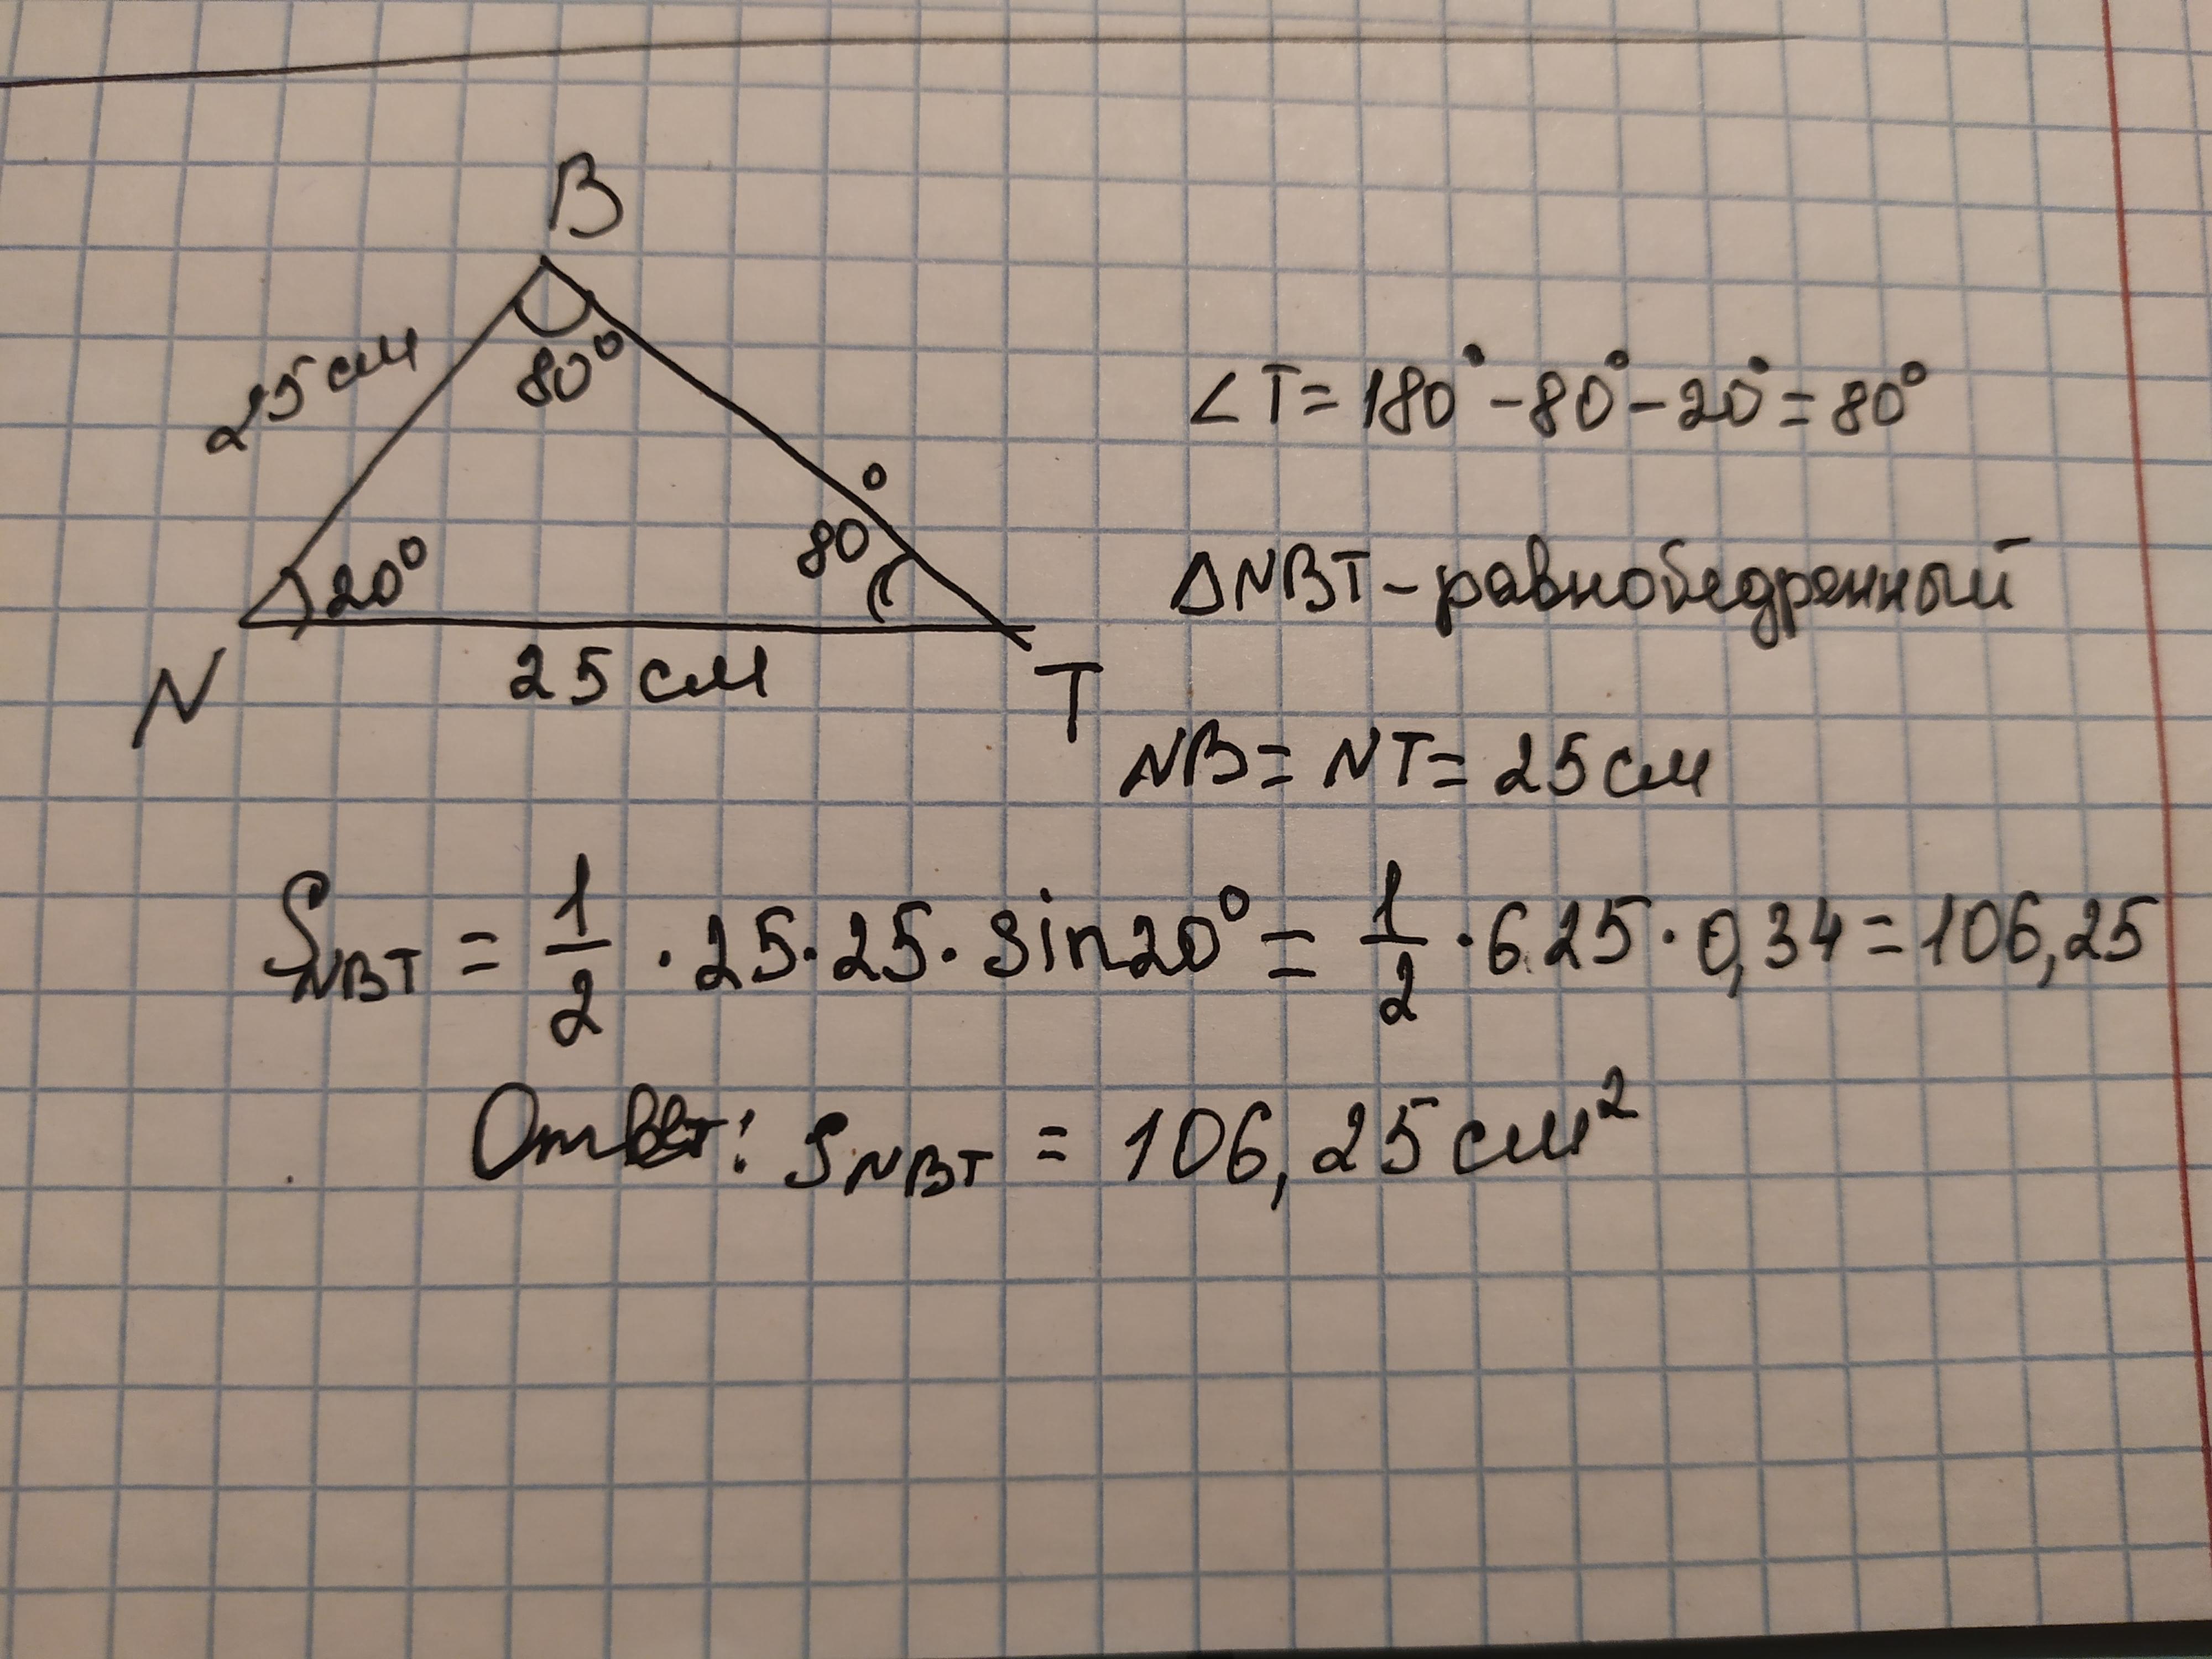 B
25 см
80°
∠T = 180° - 80° - 20° = 80°
80°
20°
△NBT - равнобедренный
25 см
N
T
NB = NT = 25 см
S_NBT = 1/2 · 25 · 25 · sin20° = 1/2 · 625 · 0,34 = 106,25
Ответ: S_NBT = 106,25 см²